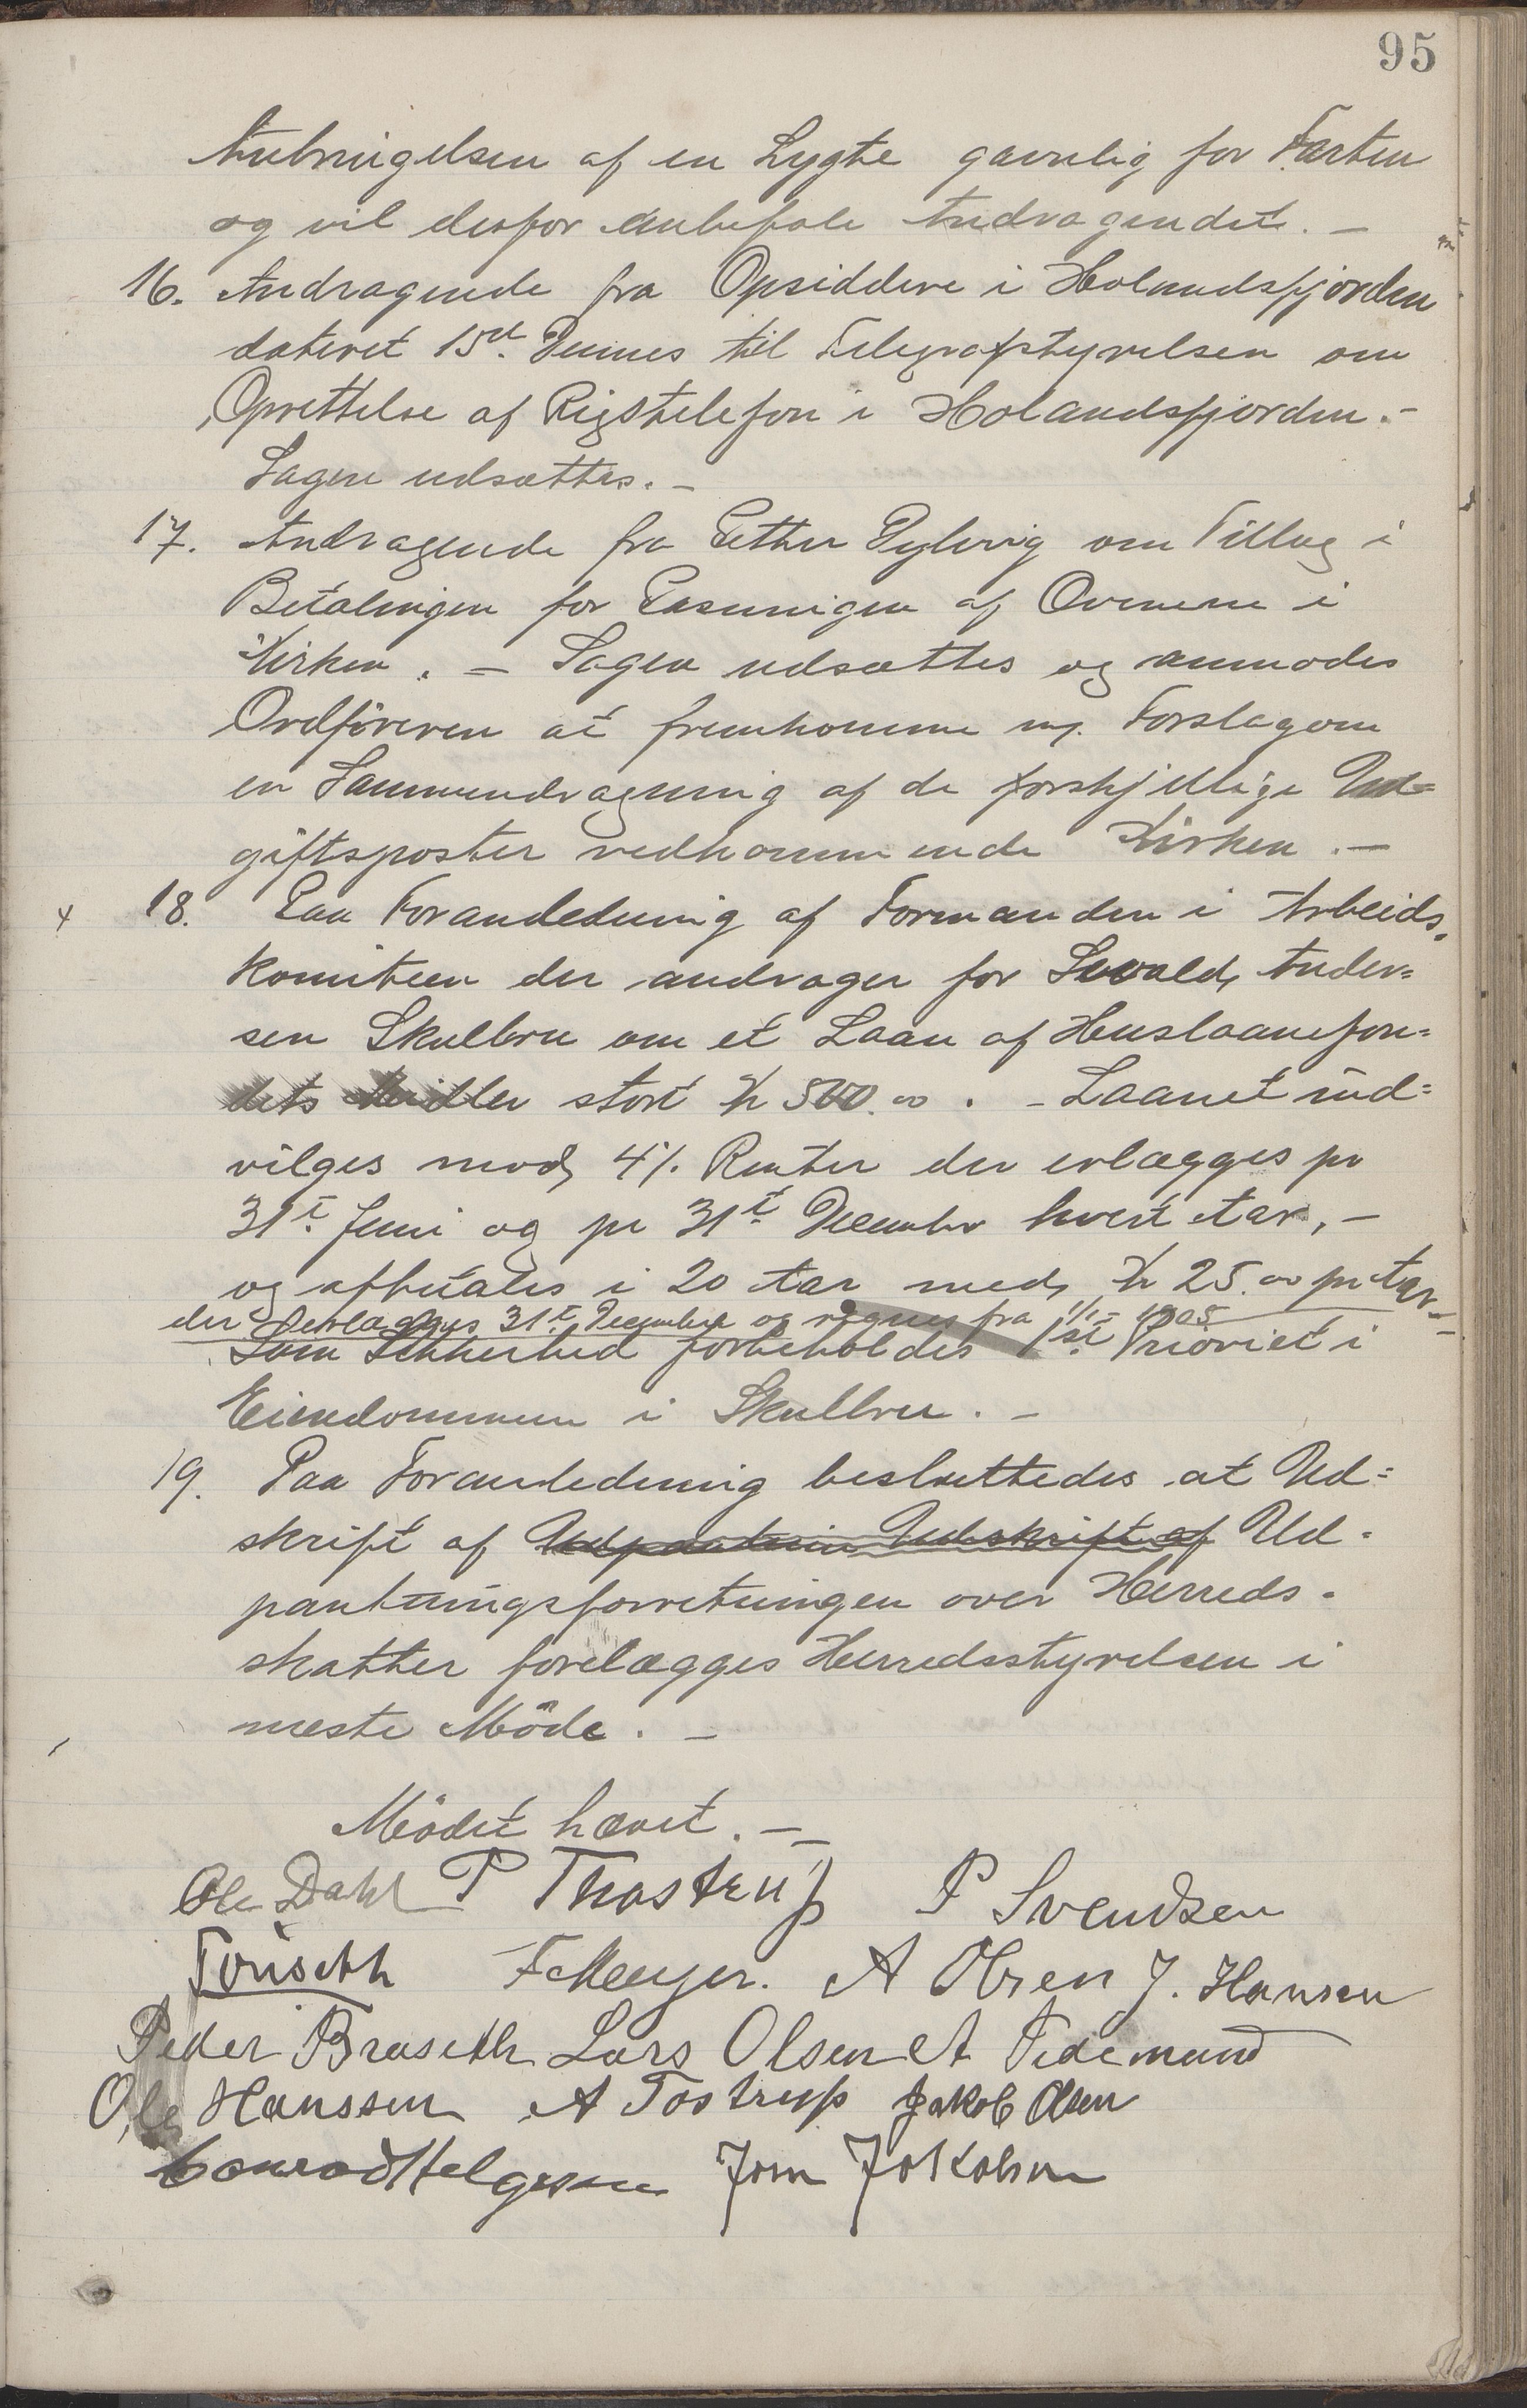 95
Anbringelsen af en Lygte gavnlig for Farten
og vil derfor anbefale Andragendet. –
16. Andragende fra Opsiddere i Holandsfjorden
dateret 15de Dennes til Telegrafstyrelsen om
Oprettelse af Rigstelefon i Holandsfjorden. –
Sagen udsættes. –
17. Andragende fra Petter om Tillæg i
Betalingen for Pasningen af Ovnene i
Kirken. – Sagen udsættes og anmodes
Ordføreren at fremkomme m. Forslag om
en Sammendragning af de forskjellige Ud=
giftsposter vedkommende Kirken. –
18. Paa Foranledning af Formanden i Arbeids.
komiteen der andrager for Sevald Ander=
sen Skulbru om et Laan af Huslaanefon=
dets Midler stort Kr 500.00. – Laanet ind=
vilges mod 4% Renter der erlægges pr
31t. Juni og pr 31t. December hvert Aar, –
og afbetales i 20 Aar med Kr 25.00 pr Aar –
der erlægges 31t. December og regnes fra 1/1 – 1905
Som Sikkerhed forbeholdes 1st. Prioritet i
Eiendommen i Skulbru. –
19. Paa Foranledning besluttedes at Ud=
skrift af Udpantnin Udskrift af Ud=
pantningsforretningen over Herreds=
skatter forelægges Herredsstyrelsen i
næste Møde. –
Mødet hævet. –
Ole Dahl P Thostrup P Svendsen
Torseth F Meyer. A Olsen J. Hansen
Peder Braseth Lars Olsen A Tidemand
Ole Hanssen A Tostrup Jakob Olsen
Conrad Helgesen Jørn Jakobsen